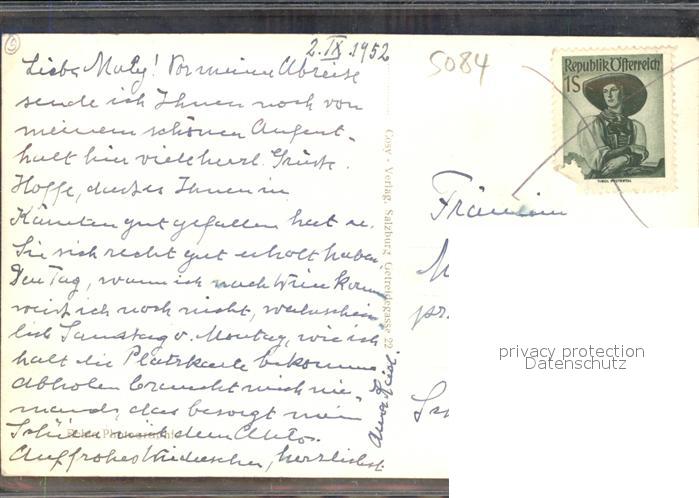 2. IX. 1952
Liebe Maly! Vor meiner Abreise
sende ich Ihnen noch von
meinem schönen Aufent-
halt hier viele herzl. Grüße.
Hoffe, daß es Ihnen in
Kärnten gut gefallen hat u.
Sie sich recht gut erholt haben.
Den Tag, wann ich nach Wien komme
weiß ich noch nicht, wahrschein
lich Samstag o. Montag, wie ich
halt die Platzkarte bekomme.
Abholen braucht mich nie-
mand, das besorgt mein
mit dem Auto.
Auf frohes Wiedersehen, herzlichst
Cosy - Verlag, Salzburg Getreidegasse 22
5084
Republik Österreich
1S
Fräulein
privacy protection
Datenschutz